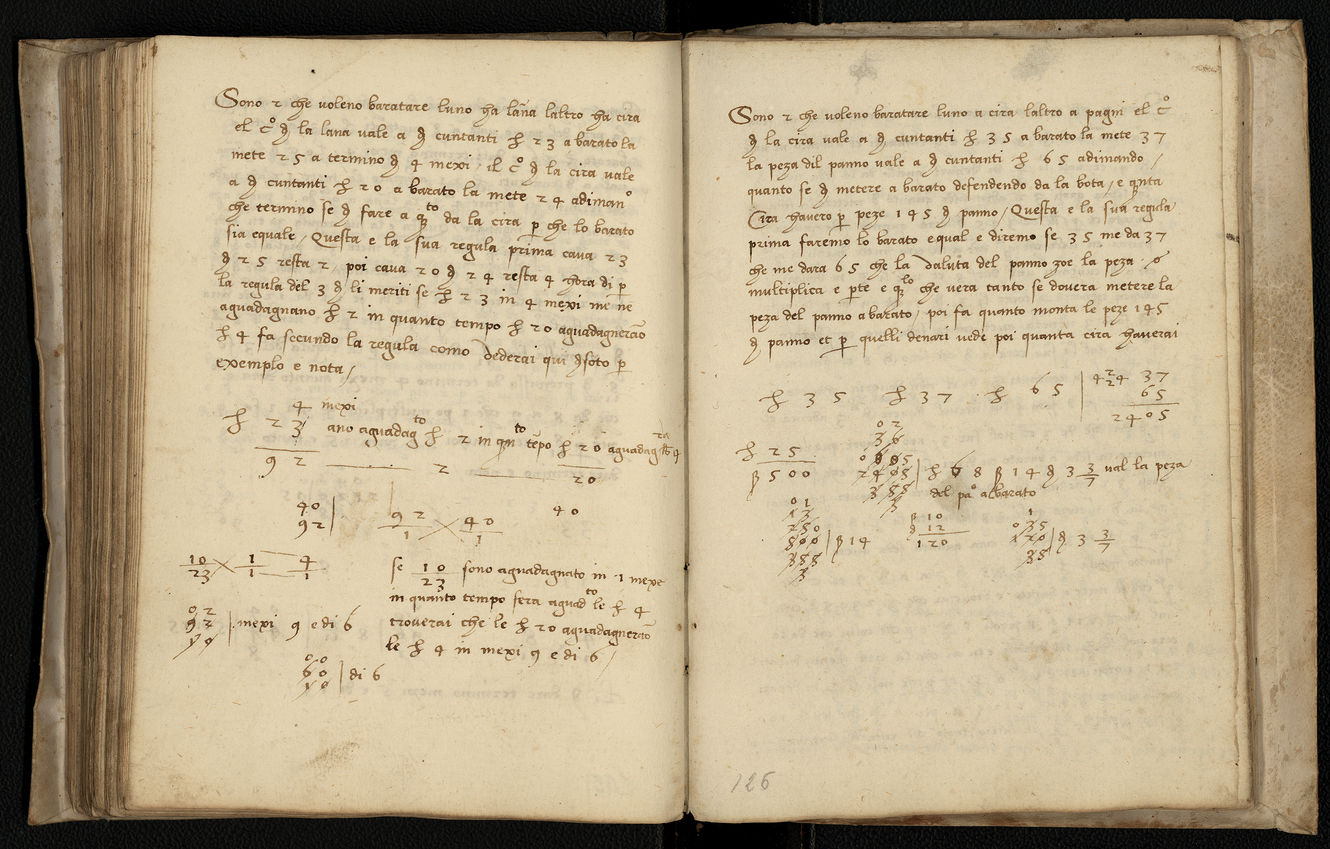 Sono 2 che voleno baratare luno ha lana laltro ha cira
el cº d la lana vale a d cuntanti h 23 a barato la
mete 25 a termino d 4 mexi, il cº d la cira vale
a d cuntanti h 20 a barato la mete 24 adimanº
che termino se d fare a qto da la cira p che lo barato
sia equale, Questa e la sua regula prima cava 23
d 25 resta 2, poi cava 20 d 24 resta 4 hora di p
la regula del 3 d li meriti se h 23 in 4 mexi me ne
aguadagnano h 2 in quanto tempo h 20 aguadagnerāo
h 4 fa secundo la regula como vederai qui dsoto p
exemplo e nota,
4 mexi
h 23 ano aguadagto h 2 in qnto tēpo h 20 aguadag h 4
92 2 20
40
92
92 40
1 1
40
10 1 4
23 1 1
se 10/23 sono aguadagnato in 1 mexe
in quanto tempo sera aguadto le h 4
troverai che le h 20 aguadagnerāo
le h 4 in mexi 9 e di 6,
02
92
mexi 9 e di 6
00
60
di 6
Sono 2 che voleno baratare luno a cira laltro a pagni el cº
d la cira vale a d cuntanti h 35 a barato la mete 37
la peza dil panno vale a d cuntanti h 65 adimando,
quanto se d metere a barato defendendo da la bota, e qnta
Cira havero p peze 145 d panno, Questa e la sua regula
prima faremo lo barato equal e diremo se 35 me da 37
che me dara 65 che la valuta del panno zoe la peza
multiplica e pte e qlo che vera tanto se dovera metere la
peza del panno a barato, poi fa quanto monta le peze 145
d panno et p quelli denari vede poi quanta cira haverai
h 35 h 37 h 65
37
65
2405
h 25
β 500
h 68 β 14 d 3 3/7 val la peza
del paº a barato
β 14
β 10
d 12
120
d 3 3/7
126